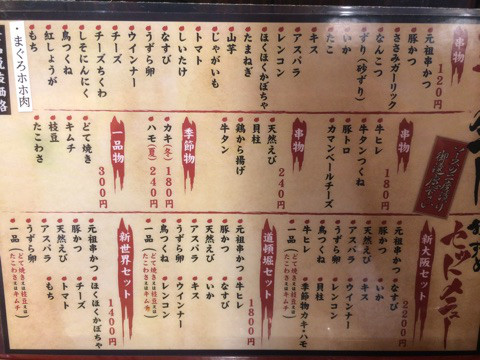 串物
120円
元祖串かつ
豚かつ
ささみガーリック
なんこつ
ずり(砂ずり)
いか
たこ
キス
アスパラ
レンコン
ほくほくかぼちゃ
たまねぎ
山芋
じゃがいも
トマト
しいたけ
なすび
うずら卵
ウインナー
チーズ
チーズちくわ
しそにんにく
鳥つくね
紅しょうが
もち
・まぐろホホ肉
串物
180円
牛ヒレ
牛タンつくね
豚トロ
カマンベールチーズ
串物
240円
天然えび
貝柱
鶏から揚げ
牛タン
季節物
カキ(冬)180円
ハモ(夏)240円
一品物
300円
どて焼き
キムチ
枝豆
たこわさ
セットメニュー
新大阪セット
2200円
元祖串かつ
豚かつ
天然えび
アスパラ
キス
うずら卵
ウインナー
いか
レンコン
鳥つくね
貝柱
牛ヒレ
季節物カキ・ハモ
一品
どて焼き又は枝豆又は
たこわさ又はキムチ
道頓堀セット
1800円
元祖串かつ
牛ヒレ
豚かつ
なすび
天然えび
いか
アスパラ
キス
うずら卵
ウインナー
鳥つくね
レンコン
一品
どて焼き又は枝豆又は
たこわさ又はキムチ
新世界セット
1400円
元祖串かつ
ほくほくかぼちゃ
豚かつ
チーズ
天然えび
トマト
アスパラ
もち
うずら卵
一品
どて焼き又は枝豆又は
たこわさ又はキムチ